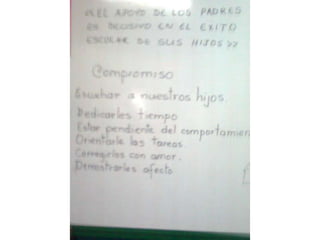 «EL APOYO DE LOS PADRES
ES DECISIVO EN EL EXITO
ESCOLAR DE SUS HIJOS»
Compromiso
Escuchar a nuestros hijos.
Dedicarles tiempo
Estar pendiente del comportamien
Orientarle las tareas.
Corregirlos con amor.
Demostrarles afecto